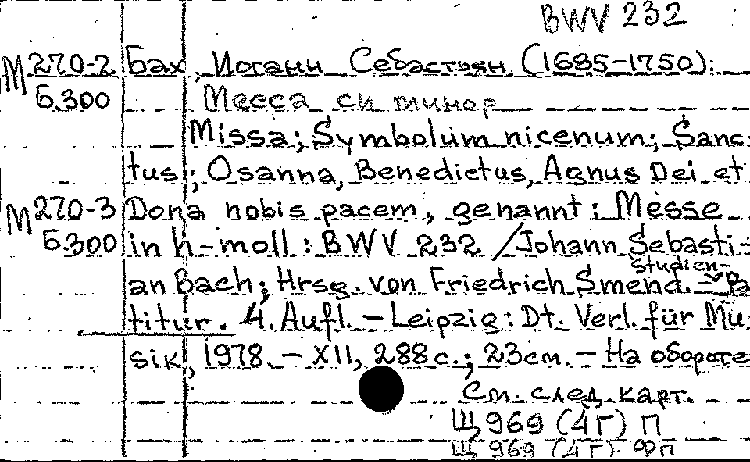 BWV 232
М 270-2 Бах, Иоганн Себастьян (1685-1750).
Б.300 Месса си минор
Missa; Symbolum nicenum; Sanc-
tus; Osanna, Benedictus, Agnus Dei et
М 270-3 Dona nobis pacem, genannt: Messe
Б.300 in h-moll: BWV 232 / Johann Sebasti-
Studien-
an Bach; Hrsg. von Friedrich Smend. - Pa
titur. 4. Aufl. - Leipzig: Dt. Verl. für Mu
sik, 1978. - XII, 288 с.; 23 см. - На обороте
См. след. карт.
Щ 969 (4Г) П
Щ 969 (4Г) ФП